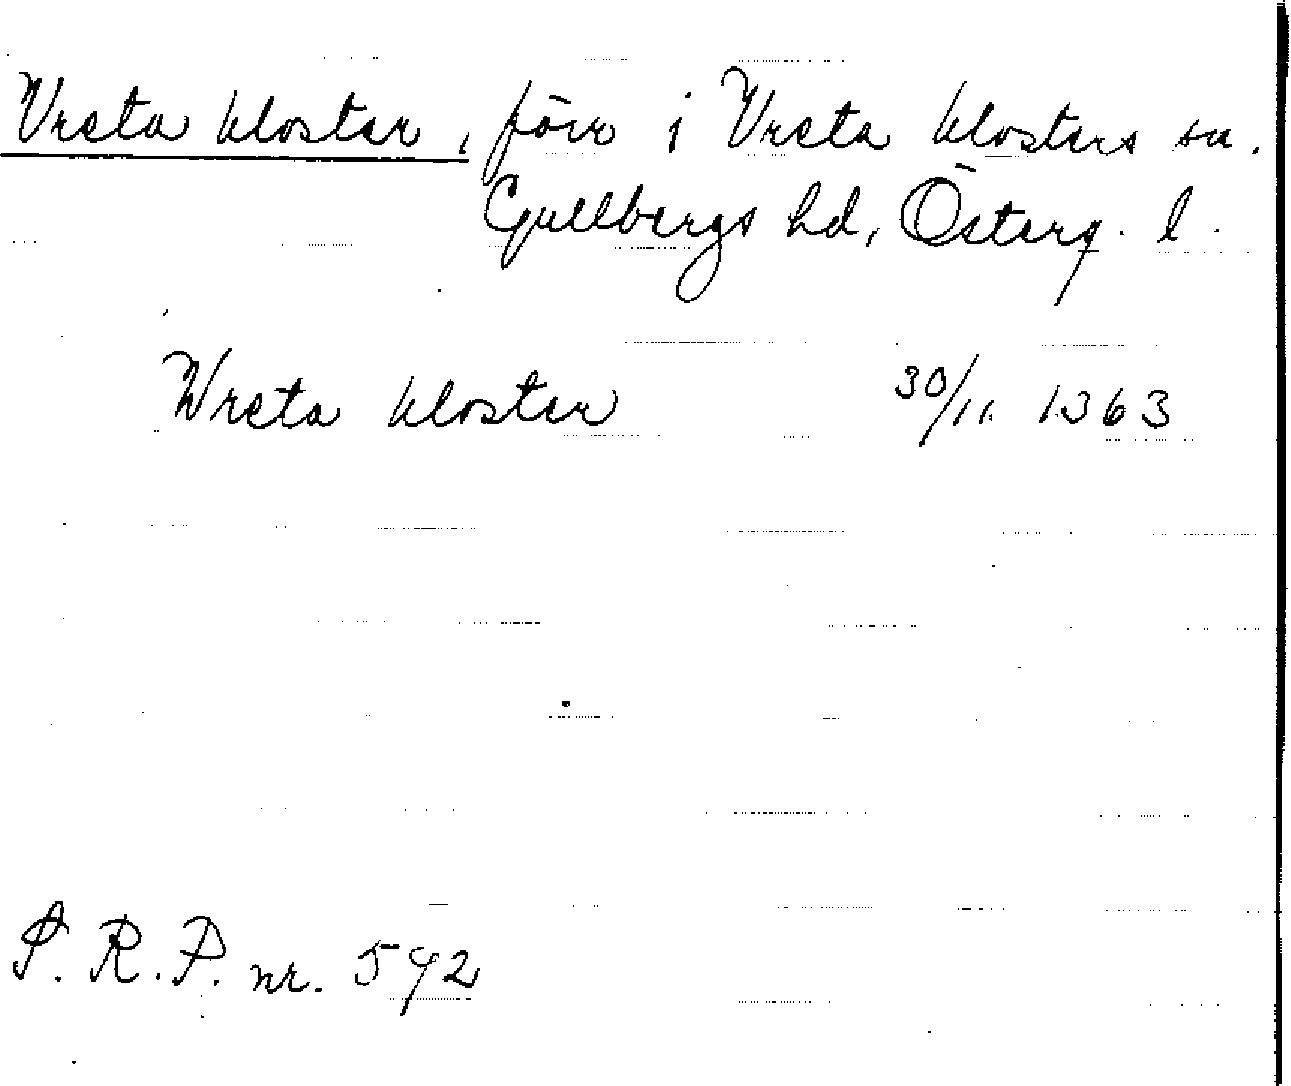 Vreta kloster, förr i Vreta klosters sn.
Gullbergs hd, Österg. l.
Wreta kloster 30/11. 1363
S. R. P. nr. 592